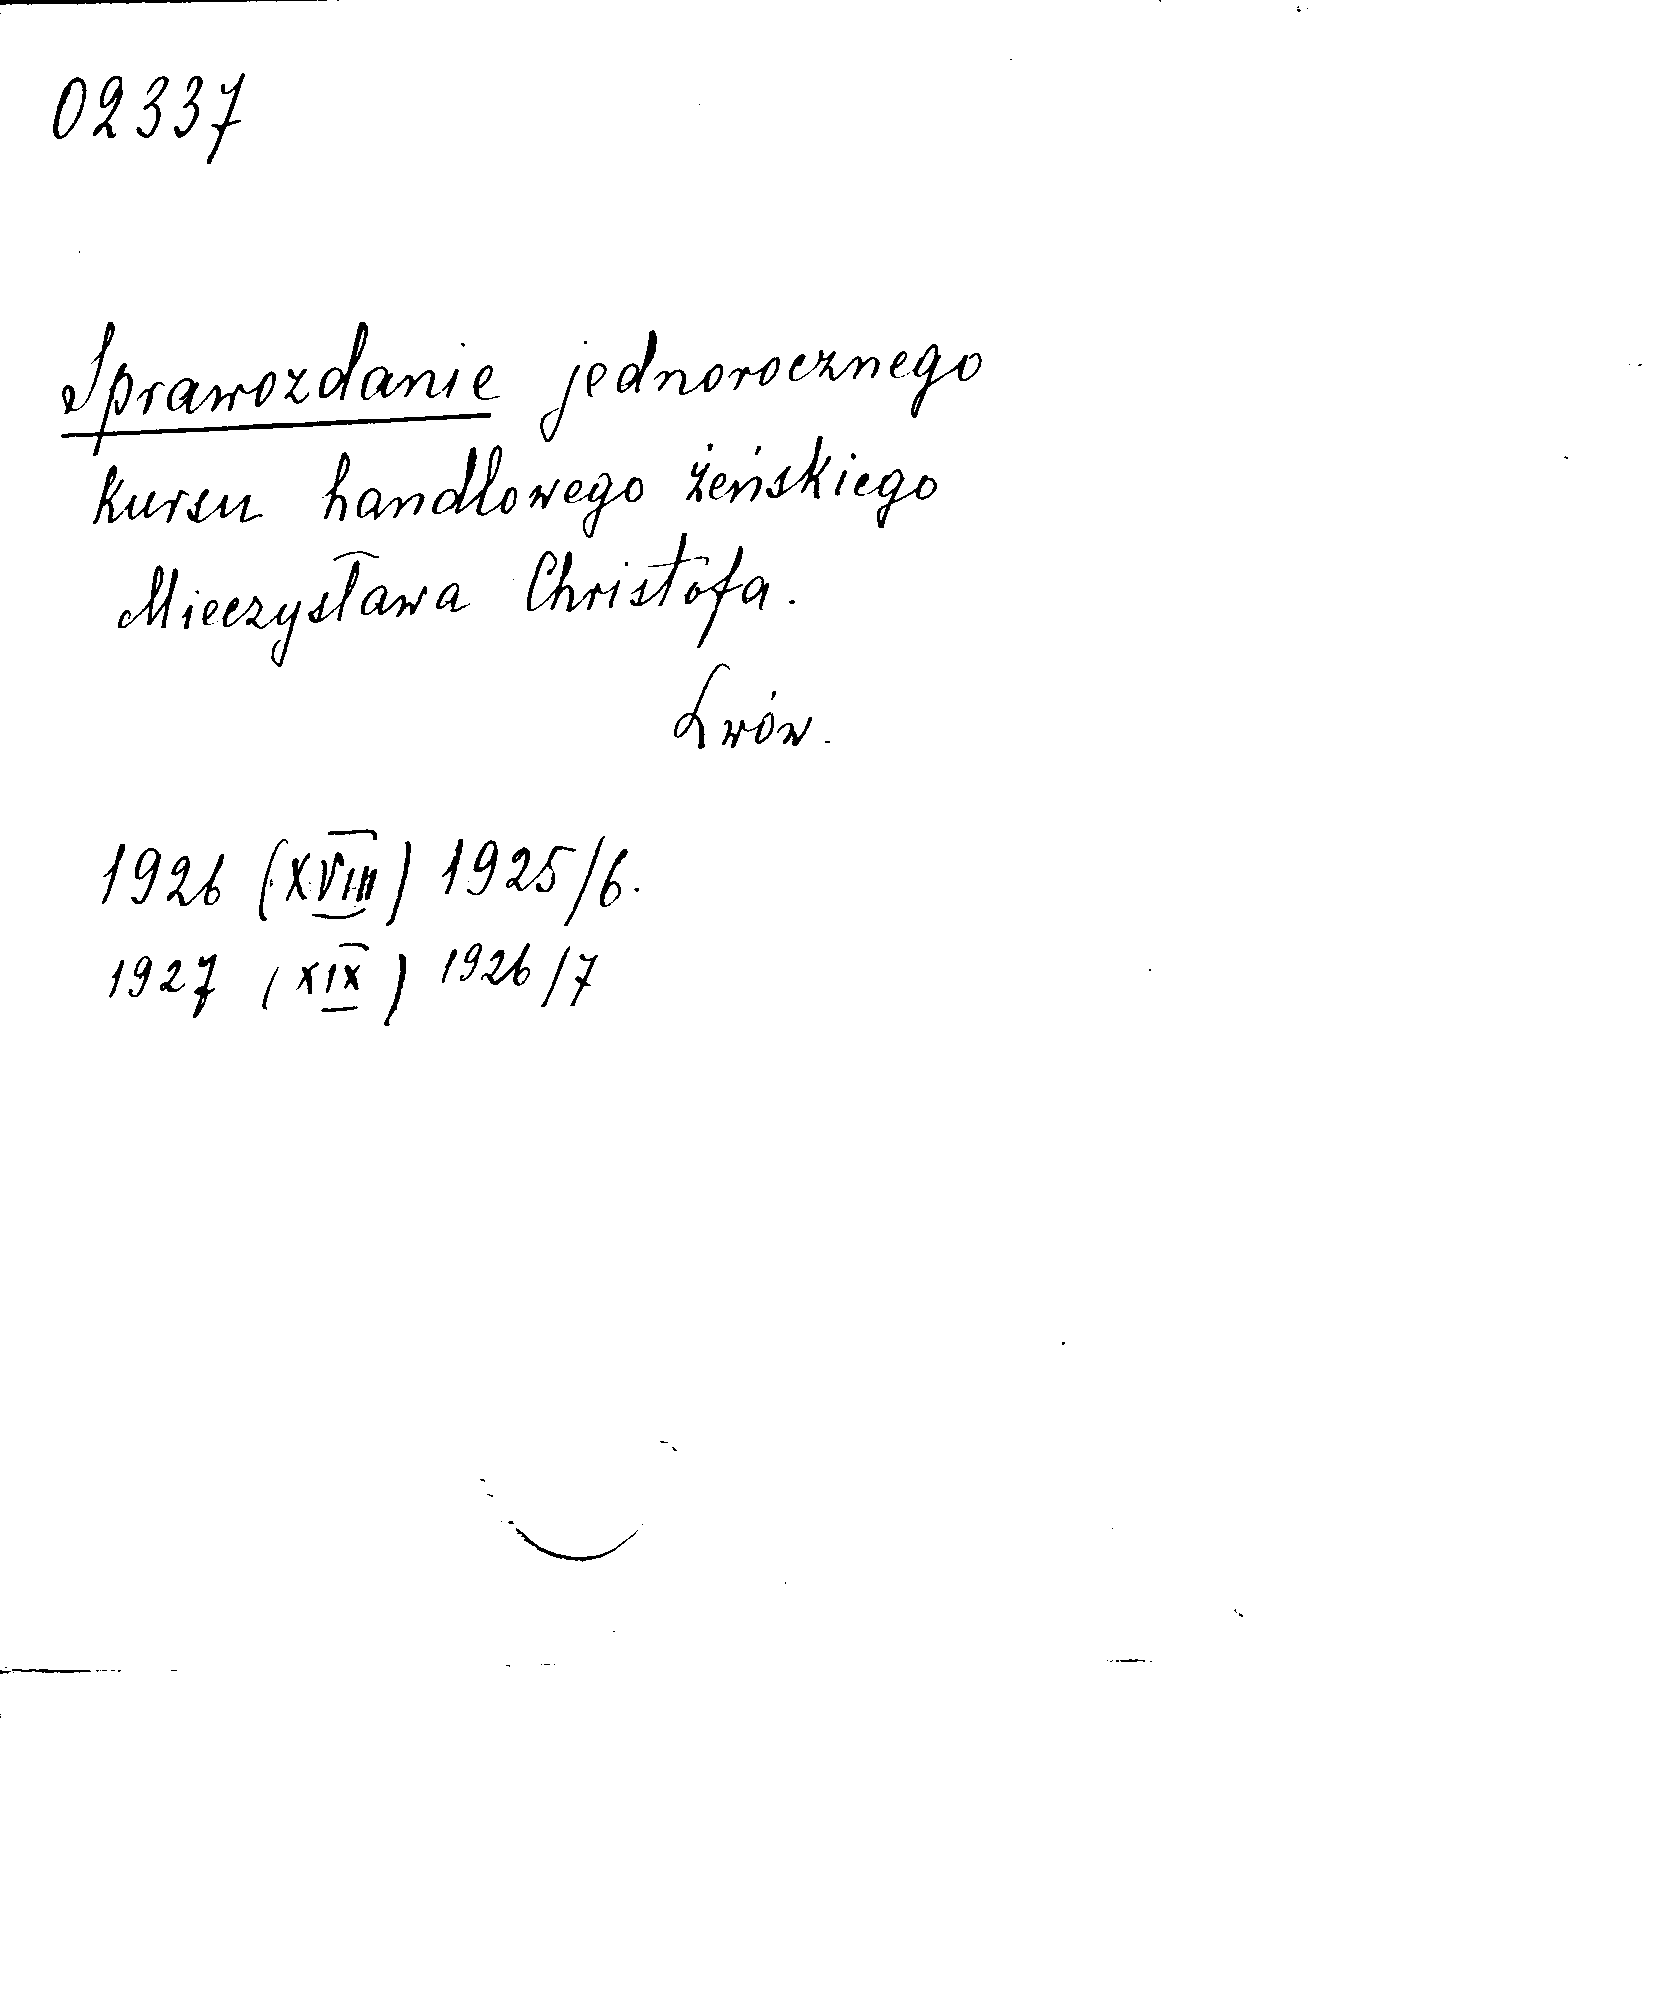 02337
Sprawozdanie jednorocznego
kursu handlowego żeńskiego
Mieczysława Christofa.
Lwów.
1926 (XVIII) 1925/6.
1927 (XIX) 1926/7